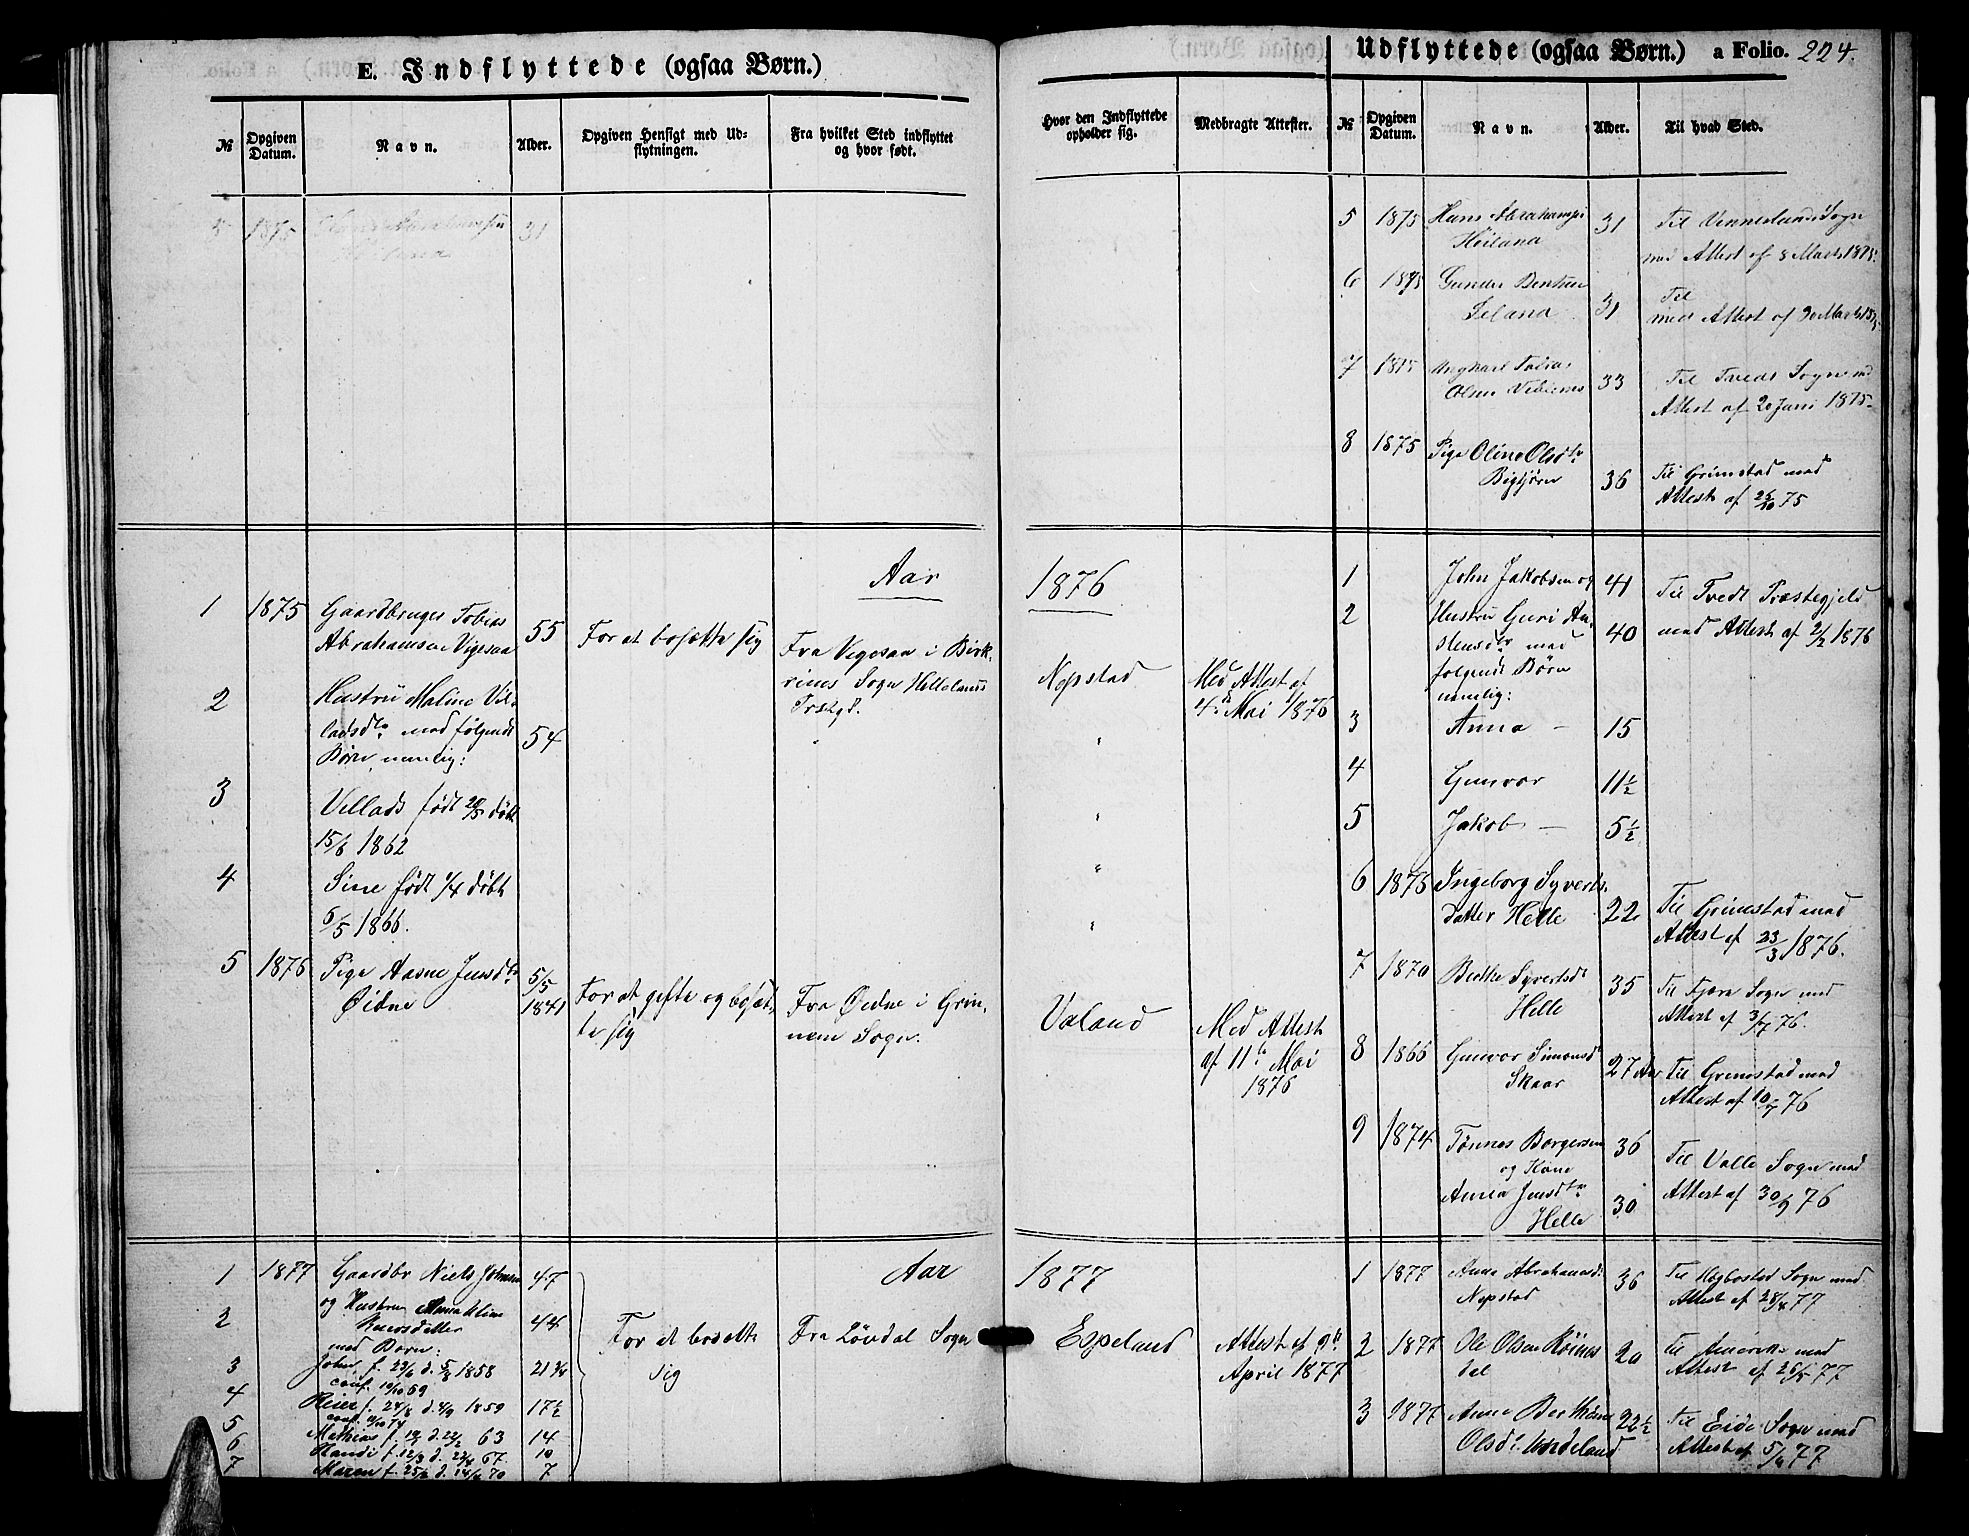 E. Indflyttede (ogsaa Børn.)
№
Opgiven Datum.
Navn.
Alder.
Opgiven Hensigt med Ud-
flytningen.
Fra hvilket Sted indflyttet
og hvor født.
5 1875 Abrahamsen 31
Aar
1 1875 Gaardbruger Tobias
Abrahamsen Vigesaa 55 For at bosætte sig Fra Vegesaa i Birk-
rims Sogn Hellelands
Prstgd.
2 Hustru Maline Vil-
ladsdtr med følgende 54
Børn, nemlig:
3 Villads født 20/5 døbt
15/6 1862
4 Sine født 1/4 døbt
6/5 1866.
5 1876 Pige Aasne Jensdtr 5/5
Øidne 1841 For at gifte og bosæt-
te sig
Fra Øidne i Grin-
nem Sogn.
Aar
1 1877 Gaardbr Niels Johnsen 47
2 og Hustru Anna Eline 44
med Børn:
For at bosette
sig
Fra Løvdal Sogn
3 John f. 23/6 d. 5/8 1858 21 3/4
conf. 10/10 69
4 Reier f. 24/8 d. 4/9 1859 17½
5 Mathias f. d. 22/2 63 14
6 Randi f. 12/3 d. 22/4 67. 10
7 Maren f. 25/2 d. 14/4 70 7
Hvor den Indflyttede
opholder sig.
Medbragte Attester.
1876
Nopstad
Med Attest af
4de Mai 1876
"
"
"
"
Valand
Med Attest
af 11te Mai
1876
1877
Espeland
Attest af 9de
April 1877
Udflyttede (ogsaa Børn.) a Folio. 224.
№
Opgiven Datum.
Navn.
Alder.
Til hvad Sted.
5 1875 Hans Abrahams
Høiland 31 Til Vennesland Sogn
med Attest af 8 Marts 1875.
6 1875 Gunder Bentsen
31 Til
med Attest af Marts 1875
7 1875 Tobias
Olsen 33 Til Tveds Sogn med
Attest af 20 Juni 1875
8 1875 Pige Oline Olsdtr
Bigtjørn 36 Til Grimstad med
Attest af 25/10 75
1 John Jakobsen og 41 Til Tvedt Præstegjeld
2 Hustru Guri An-
stensdtr med 40 med Attest af 2/2 1876
følgende Børn
nemlig:
3 Anna — 15
4 Gunvor 11½
5 Jakob — 5½
6 1875 Ingeborg Syverts-
datter Helle 22 Til Grimstad med
Attest af 23/3 1876.
7 1870 Berthe Syvertsd
Helle 35 Til Fjære Sogn med
Attest af 3/7 76.
8 1866 Gunvor Simonsd
Skaar 27 Aar Til Grimstad med
Attest af 10/7 76
9 1874 Tønnes Borgersen 36
og Kone
Anna Jensdtr 30
Helle
Til Valle Sogn med
Attest af 30/9 76
1 1877 Anne Abrahamsd.
Nopstad 36 Til Hegbostad Sogn med
Attest af 28/4 77
2 1877 Ole Olsen Røines
dal 20 Til Amerika med
Attest af 26/5 77
3 1877 Anne Berthine
Olsd. 22½ Til Eide Sogn med
Attest af 5/6 77